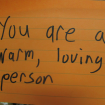 You are a
warm, loving
person